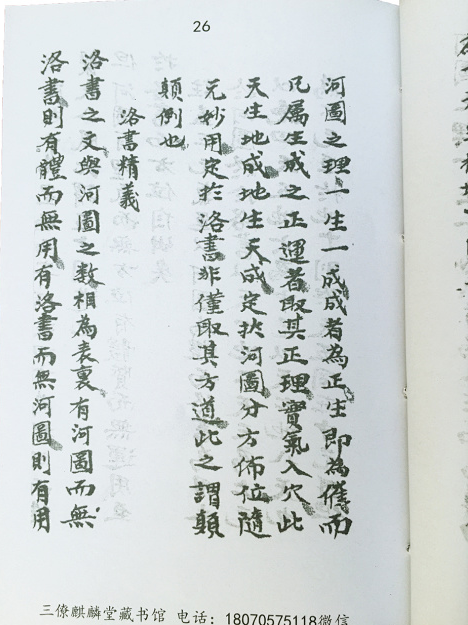 26
河圖之理一生一成成者為正生即為催而
凡属生成之正運者取其正理實氣入穴此
天生地成地生天成定扵河圖分方佈位隨
元妙用定扵洛書非僅取其方道此之謂顛
顛倒也
洛書精義
洛書之文與河圖之数相為表裏有河圖而無
洛書則有體而無用有洛書而無河圖則有用
三僚麒麟堂藏书馆 电话：18070575118微信